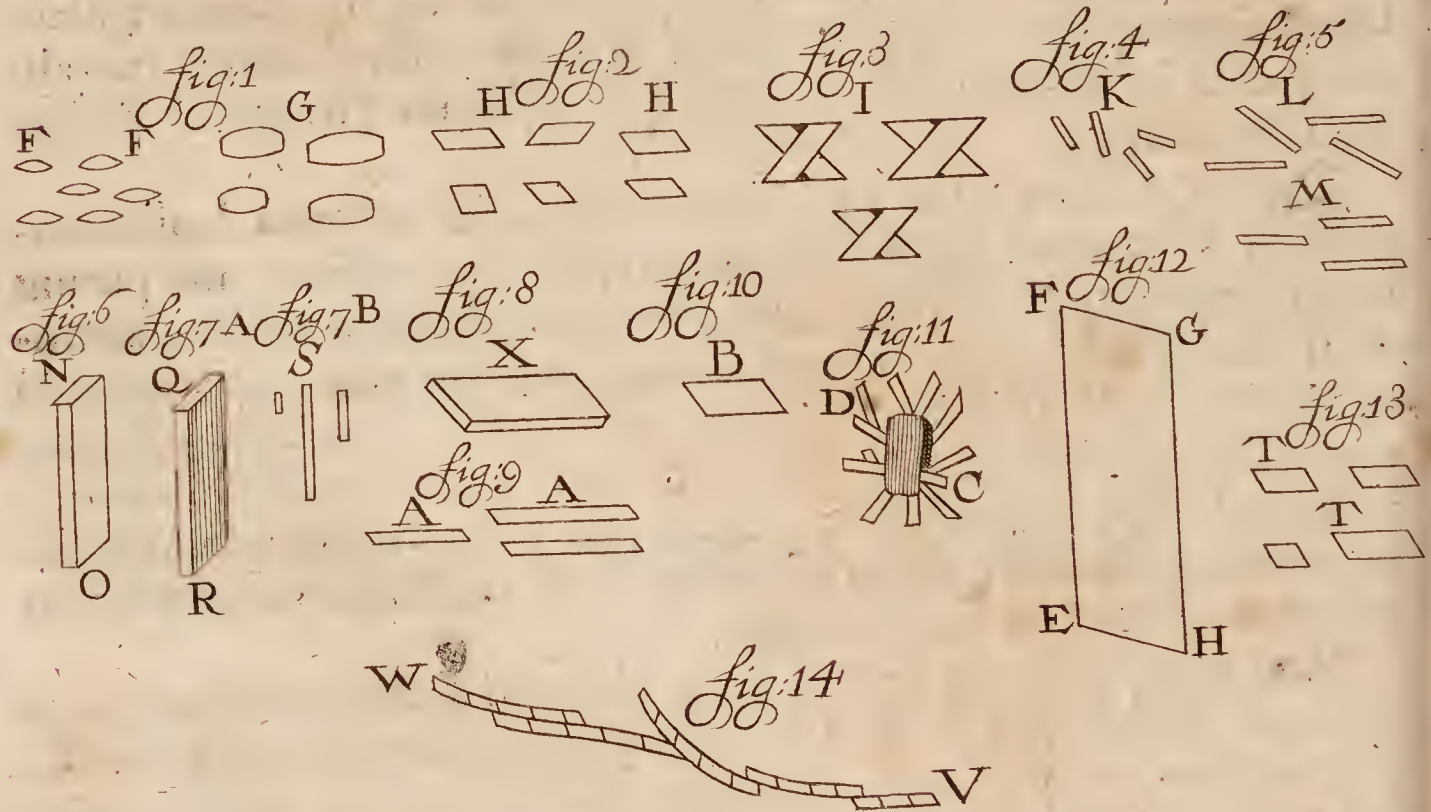 fig:1
F F G
fig:2
H H
fig:3
I
fig:4
K
fig:5
L
M
fig:6
N
O
fig:7 A
Q
R
fig:7 B
S
fig:8
X
fig:9
A A
fig:10
B
fig:11
D
C
fig:12
F
G
E
H
fig:13
T
T
fig:14
W
V